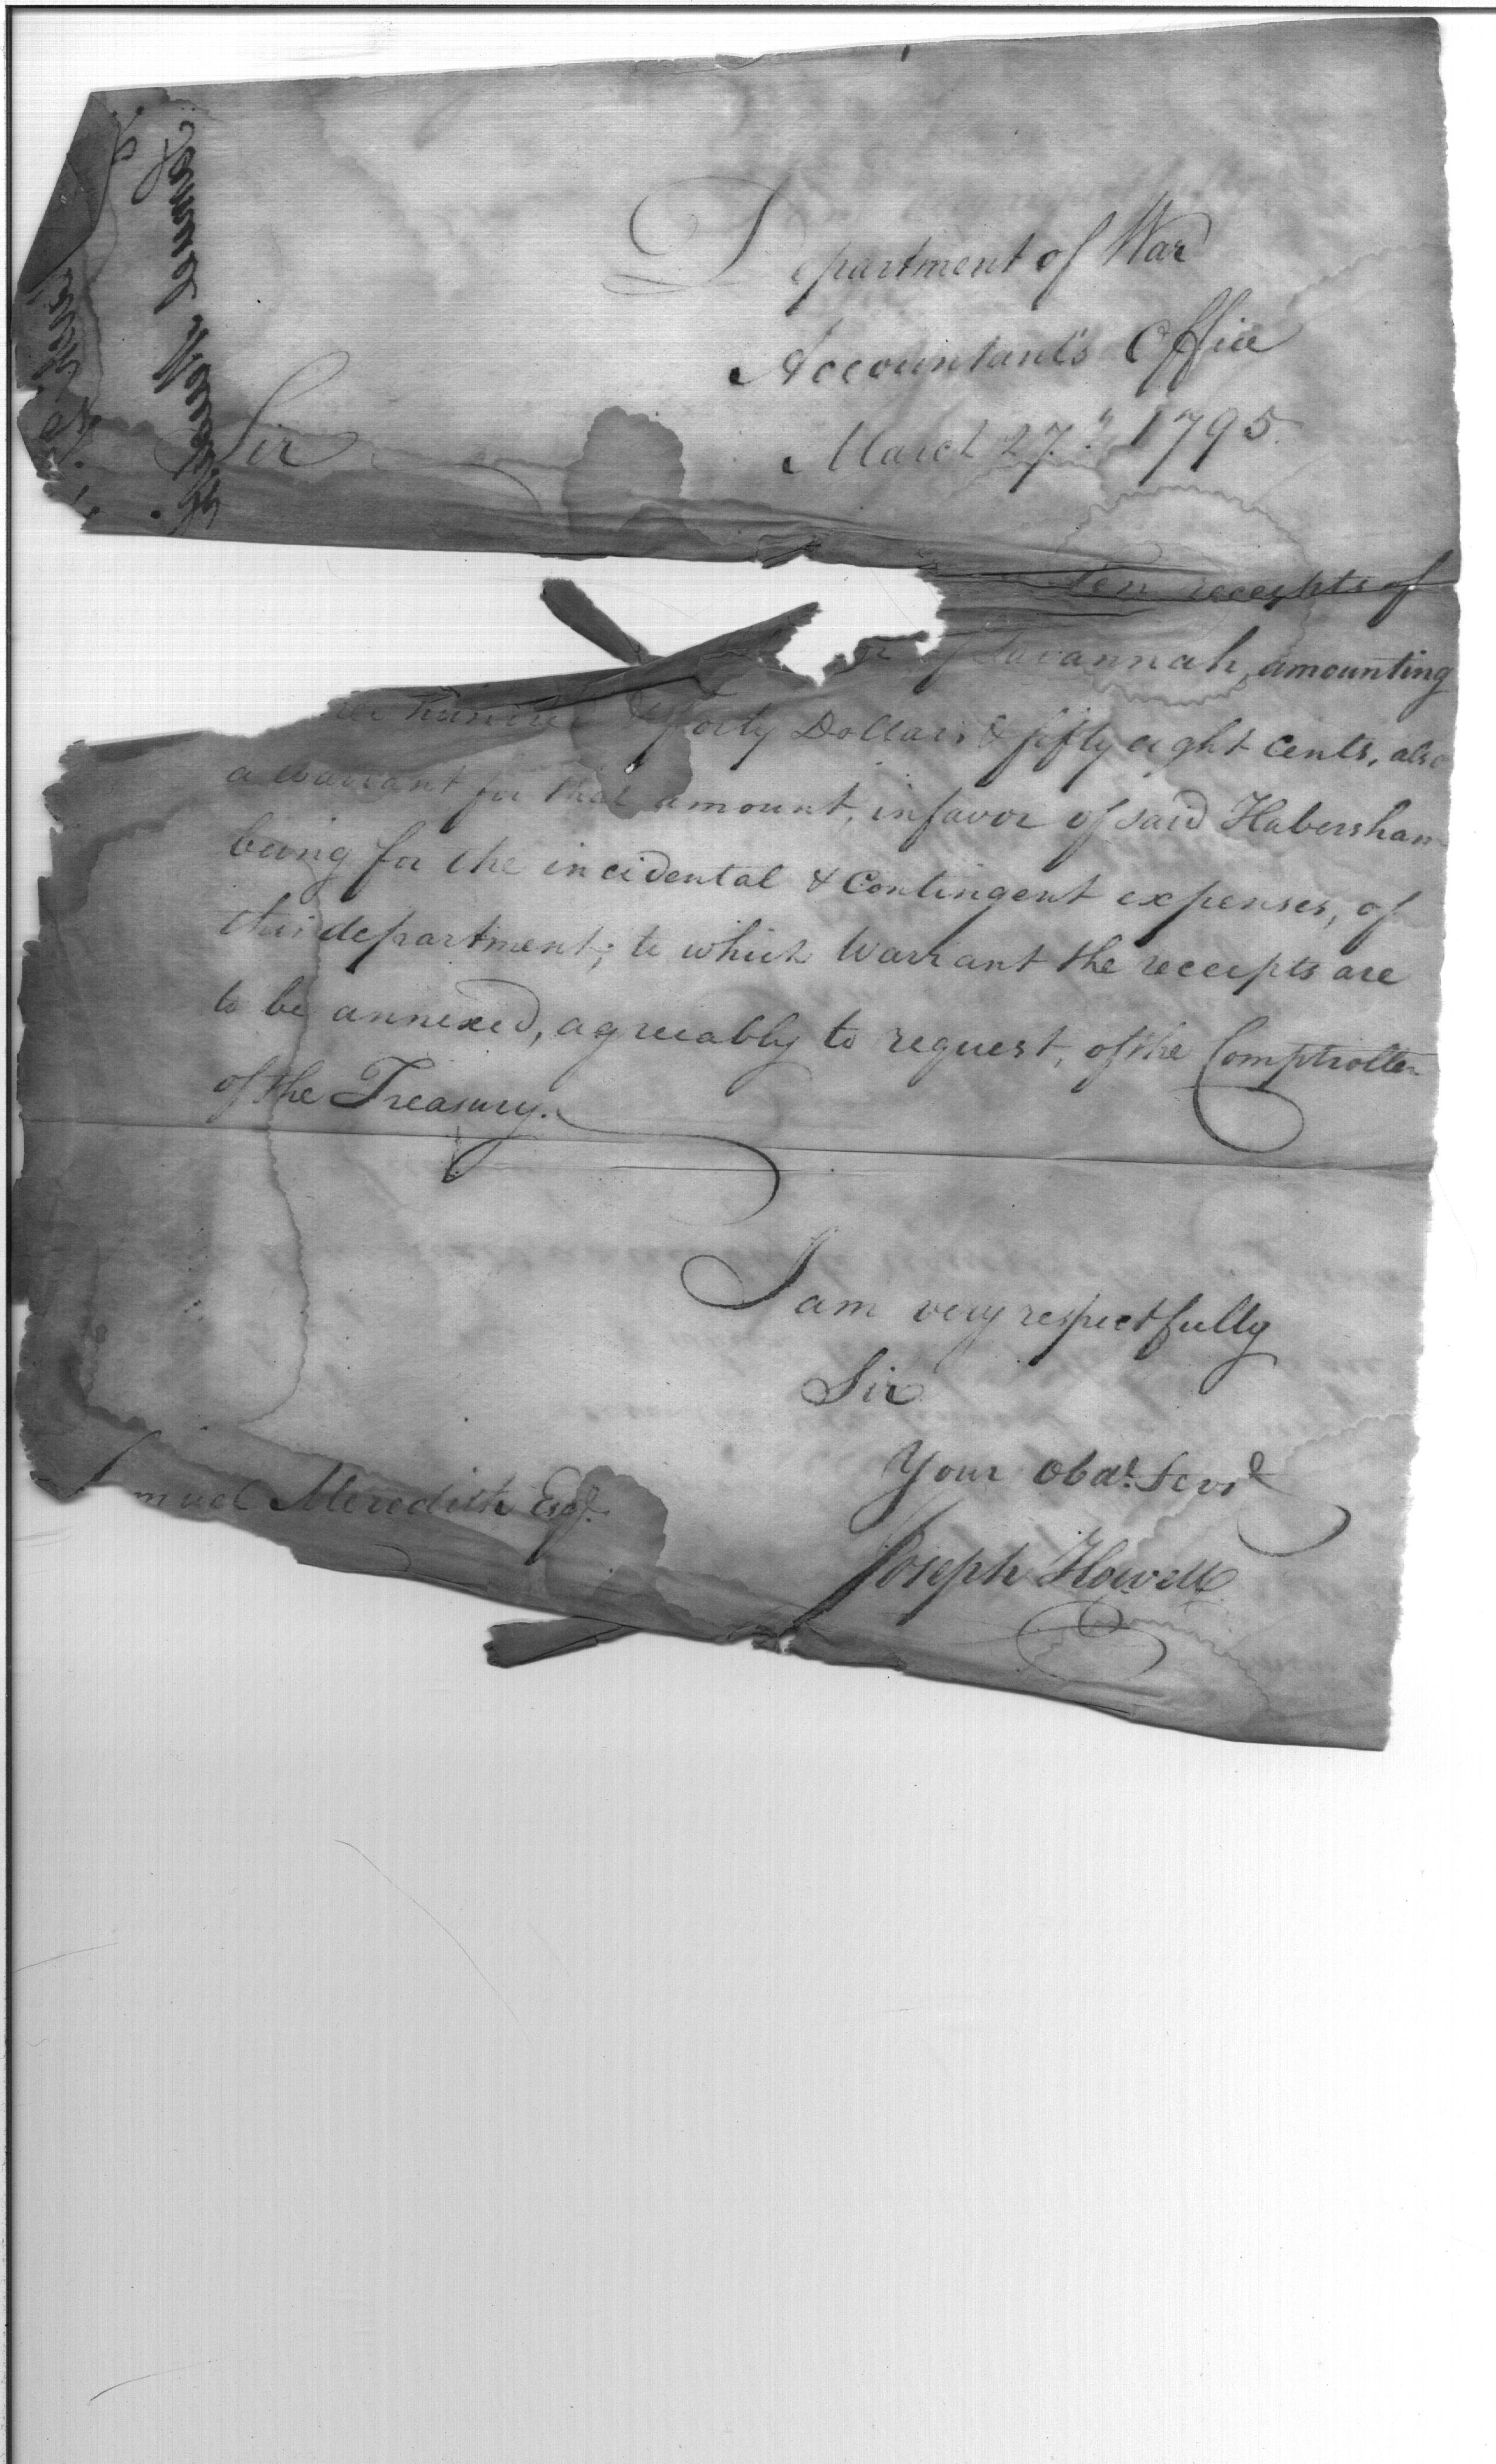 Department of War
Accountant's Office
March 27.th 1795.
Sir
Ten receipts of
of Savannah, amounting
hundred & forty Dollars & fifty eight Cents, also
a warrant for that amount, in favor of said Habersham
being for the incidental & Contingent expenses, of
this department; to which Warrant the receipts are
to be annexed, agreeably to request, of the Comptroller
of the Treasury.
I am very respectfully
Sir
Your Obdt. Servt
Joseph Howell
muel Meredith Esqr.